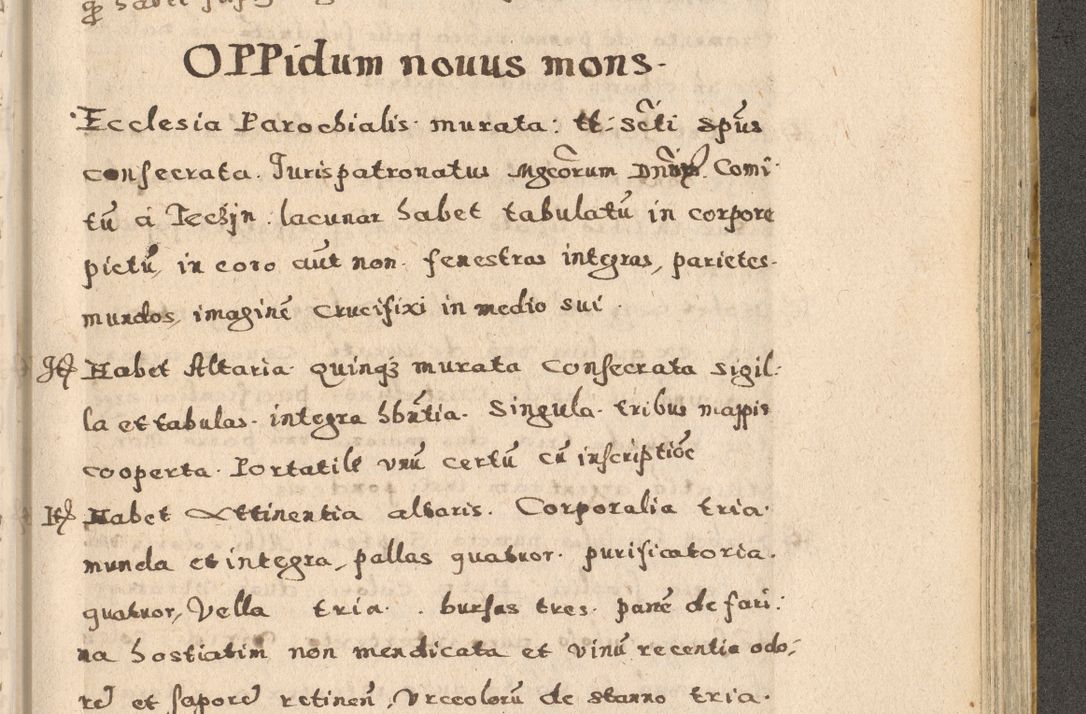 OPPidum nouus mons.
Ecclesia Parochialis murata: tt: Scti Spũs
consecrata. Jurispatronatus Mgcorum Dnor. Comi
tũ a Techjn. lacunar habet tabulatũ in corpore
pictũ, in coro aũt non. fenestras integras, parietes
mundos, imaginẽ Crucifixi in medio sui.
Itẽ Habet Altaria quinq3 murata Consecrata sigil:
la et tabulas integra hbntia. Singula tribus mappis
cooperta. Portatile vnũ certũ cũ inscriptiõe
Itẽ Habet Attinentia altaris. Corporalia tria.
munda et integra, pallas quatuor. purificatoria.
quatuor, Vella tria. bursas tres. panẽ de fari:
na hostiatim non mendicata et vinũ recentis odo,
re et sapore retinen, Vrceolorũ de stanno tria.